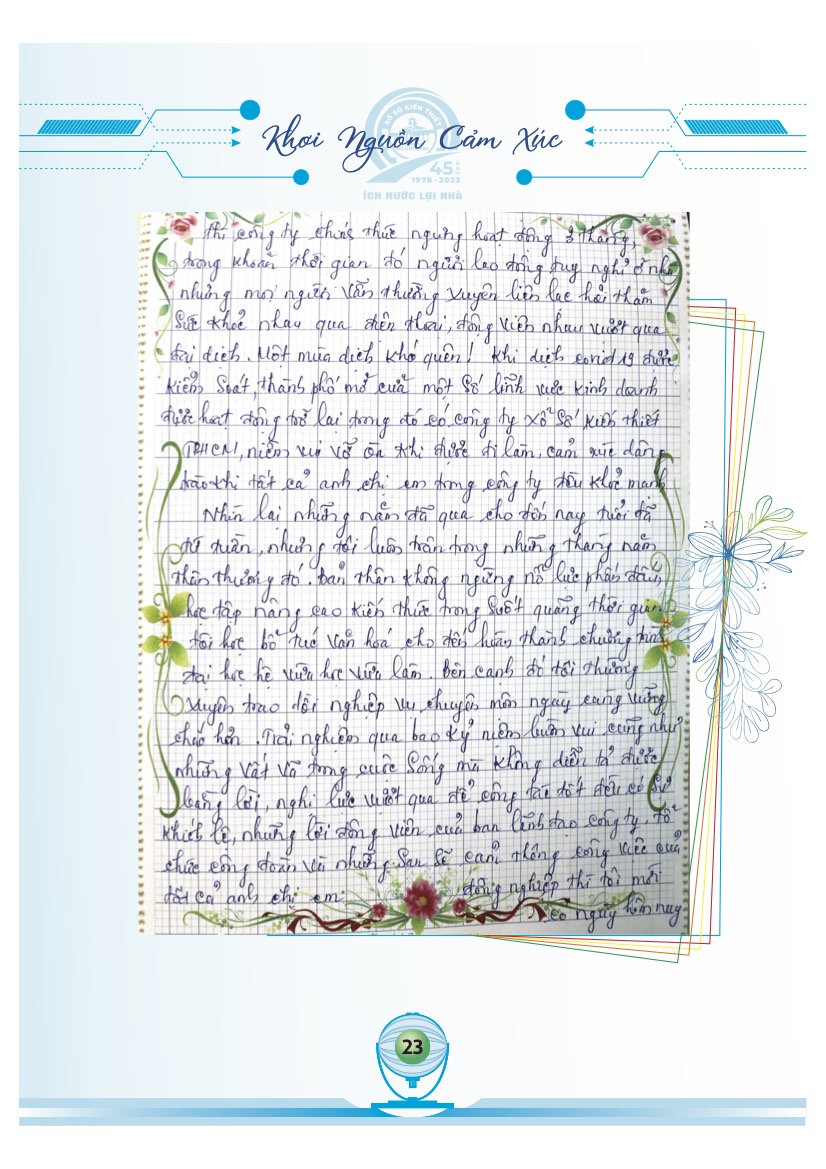 XỔ SỐ KIẾN THIẾT
Khơi Nguồn Cảm Xúc
45 NĂM
1978 - 2023
ÍCH NƯỚC LỢI NHÀ
thì công ty chính thức ngưng hoạt động 3 tháng,
trong khoản thời gian đó người lao động tuy nghỉ ở nhà
nhưng mọi người vẫn thường xuyên liên lạc hỏi thăm
sức khoẻ nhau qua điện thoại, động viên nhau vượt qua
đại dịch. Một mùa dịch khó quên! Khi dịch covid 19 được
kiểm soát, thành phố mở cửa một số lĩnh vực kinh doanh
được hoạt động trở lại trong đó có công ty xổ số kiến thiết
TPHCM, niềm vui vỡ òa khi được đi làm, cảm xúc dâng
trào khi tất cả anh chị em trong công ty đều khoẻ mạnh
Nhìn lại những năm đã qua cho đến nay tuổi đã
tứ tuần, nhưng tôi luôn trân trọng những tháng năm
thân thương đó. Bản thân không ngừng nỗ lực phấn đấu,
học tập nâng cao kiến thức trong suốt quãng thời gian
tôi học bổ túc văn hoá cho đến hoàn thành chương trình
đại học hệ vừa học vừa làm. Bên cạnh đó tôi thường
xuyên trao dồi nghiệp vụ chuyên môn ngày càng vững
chắc hơn. Trải nghiệm qua bao kỷ niệm buồn vui cũng như
những vất vả trong cuộc sống mà không diễn tả được
bằng lời, nghị lực vượt qua để công tác tốt đều có sự
khích lệ, những lời động viên của ban lãnh đạo công ty, tổ
chức công đoàn và những san sẻ cảm thông công việc của
tất cả anh chị em đồng nghiệp thì tôi mới
có ngày hôm nay
23